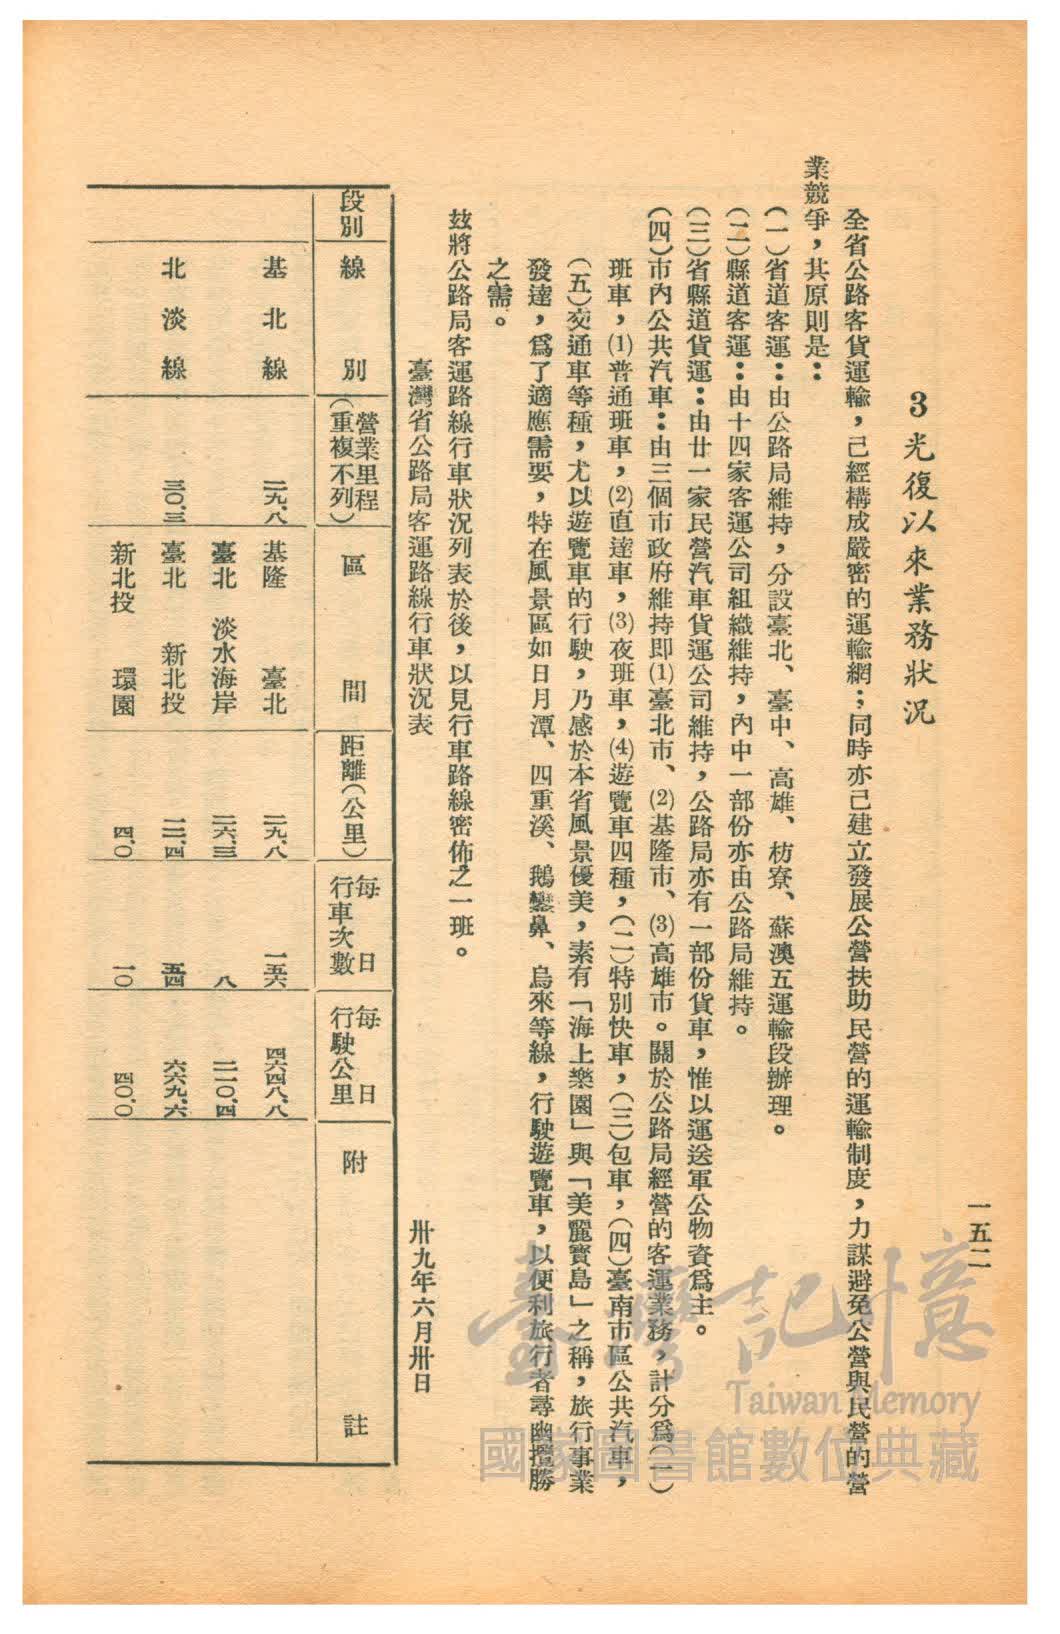 一五二
3光復以來業務狀況
全省公路客貨運輸，已經構成嚴密的運輸網；同時亦已建立發展公營扶助民營的運輸制度，力謀避免公營與民營的營
業競爭，其原則是：
(一)省道客運：由公路局維持，分設臺北、臺中、高雄、枋寮、蘇澳五運輸段辦理。
(二)縣道客運：由十四家客運公司組織維持，內中一部份亦由公路局維持。
(三)省縣道貨運：由廿一家民營汽車貨運公司維持，公路局亦有一部份貨車，惟以運送軍公物資爲主。
(四)市內公共汽車：由三個市政府維持即(1)臺北市、(2)基隆市、(3)高雄市。關於公路局經營的客運業務，計分爲(一)
班車，(1)普通班車，(2)直達車，(3)夜班車，(4)遊覽車四種，(二)特別快車，(三)包車，(四)臺南市區公共汽車，
(五)交通車等種，尤以遊覽車的行駛，乃感於本省風景優美，素有「海上樂園」與「美麗寶島」之稱，旅行事業
發達，爲了適應需要，特在風景區如日月潭、四重溪、鵝鑾鼻、烏來等線，行駛遊覽車，以便利旅行者尋幽攬勝
之需。
茲將公路局客運路線行車狀況列表於後，以見行車路線密佈之一班。
臺灣省公路局客運路線行車狀況表
卅九年六月卅日
段別 線別 營業里程(重複不列) 區間 距離(公里) 每日行車次數 每日行駛公里 附註
基北線 二九.八 基隆 臺北 二九.八 一五六 四六四八.八
臺北 淡水海岸 二六.三 八 二一〇.四
北淡線 三〇.三 臺北 新北投 一二.四 五四 六六九.六
新北投 環園 四.〇 一〇 四〇.〇
臺灣記憶
Taiwan Memory
國家圖書館數位典藏